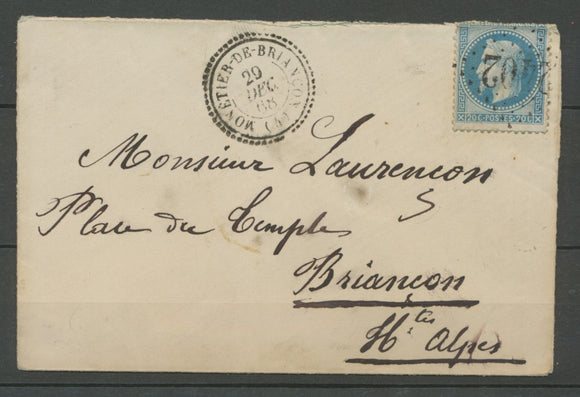 MONETIER-DE-BRIANCON (4)
29
DEC
68
402
20c POSTES 20c
Monsieur Laurencon
Place du Temple
Briançon
Htes Alpes